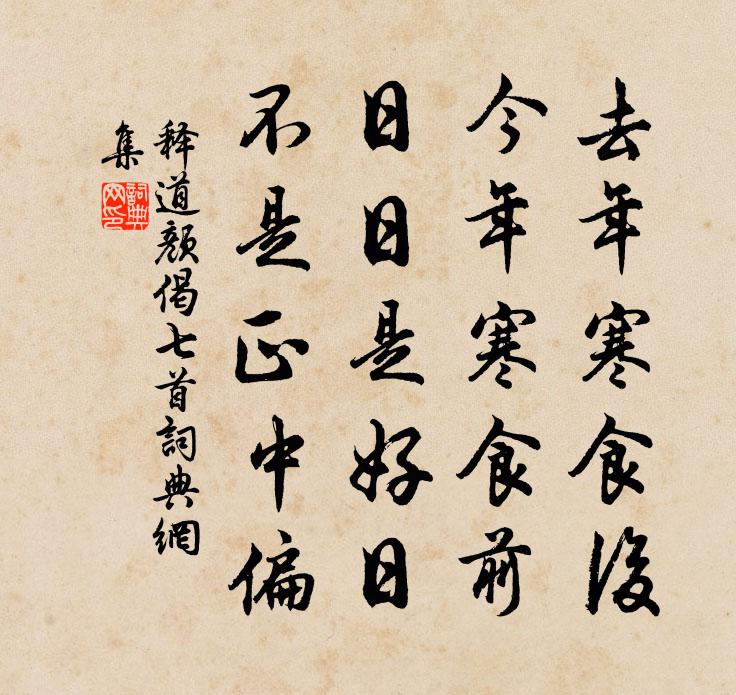 去年寒食後
今年寒食前
日日是好日
不是正中偏
释道颜偈七首詞典網
集
詞典网印